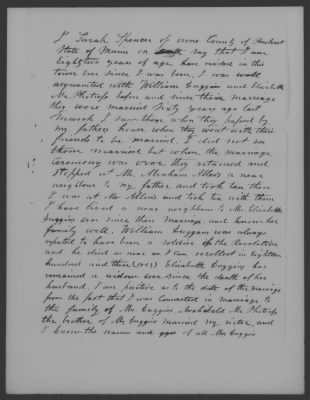 I Sarah Spencer of Orono County of
State of Maine on say that I am
Eighty two years of age, have resided in this
town ever since I was born, I was well
acquainted with William Duggins and Elizabeth
Mc Phetres before and since their marriage
they were married Sixty years ago last
March I saw them when they passed by
my fathers house when they went with their
friends to be married. I did not see
them married but when the marriage
Ceremony was over they returned and
stopped at Mr. Abraham Allens a near
neighbour to my father and took tea there
I was at Mr Allens and took tea with them
I have lived a near neighbour to Mr Elizabeth
Duggins ever since their marriage and known her
family well, William Duggans was always
reputed to have been a soldier of the Revolution
and he died as near as I can recollect in Eighteen
hundred and three (1803) Elizabeth Duggins has
remained a widow ever since the death of her
husband, I am positive as to the date of the marriage
from the fact that I was connected in marriage to
the family of Mrs Duggins Archibald Mc Phetres
the brother of Mrs Duggins married my sister, and
I know the names and ages of all Mrs Duggins